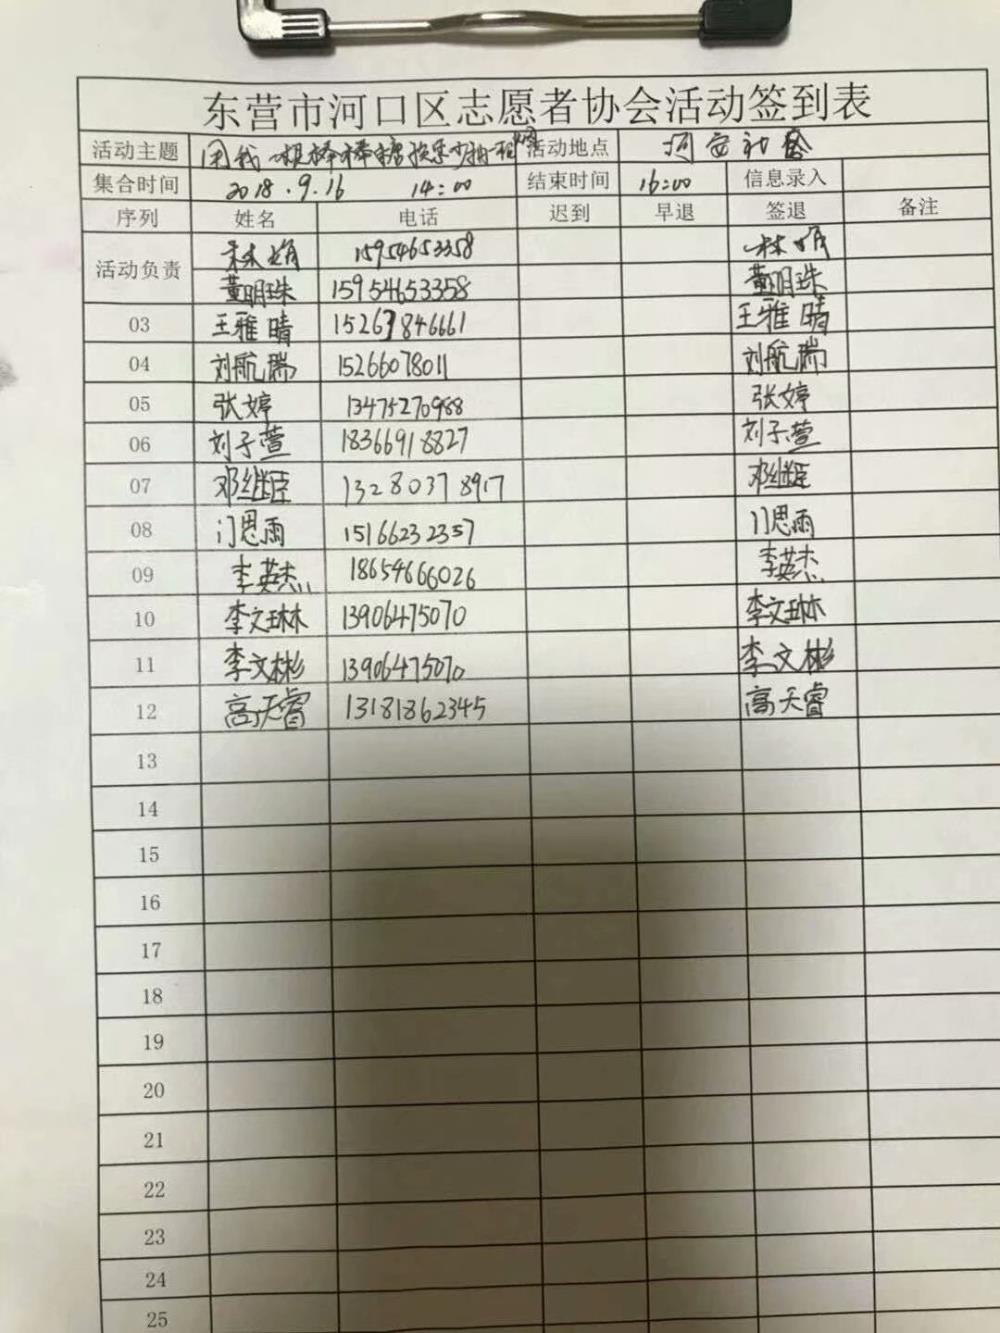 东营市河口区志愿者协会活动签到表
活动主题 用我一根棒棒糖换你 活动地点 河安社区
集合时间 2018.9.16 14:00 结束时间 16:00 信息录入
序列 姓名 电话 迟到 早退 签退 备注
活动负责 林娟 15954653358 林娟
董明珠 15954653358 董明珠
03 王雅晴 15263846661 王雅晴
04 刘航瑞 15266078011 刘航瑞
05 张婷 13475270988 张婷
06 刘子萱 18366918827 刘子萱
07 邓继臣 13280378917 邓继臣
08 门思雨 15166232357 门思雨
09 李英杰 18654666026 李英杰
10 李文琳 13906475070 李文琳
11 李文彬 13906475070 李文彬
12 高天睿 13181862345 高天睿
13
14
15
16
17
18
19
20
21
22
23
24
25